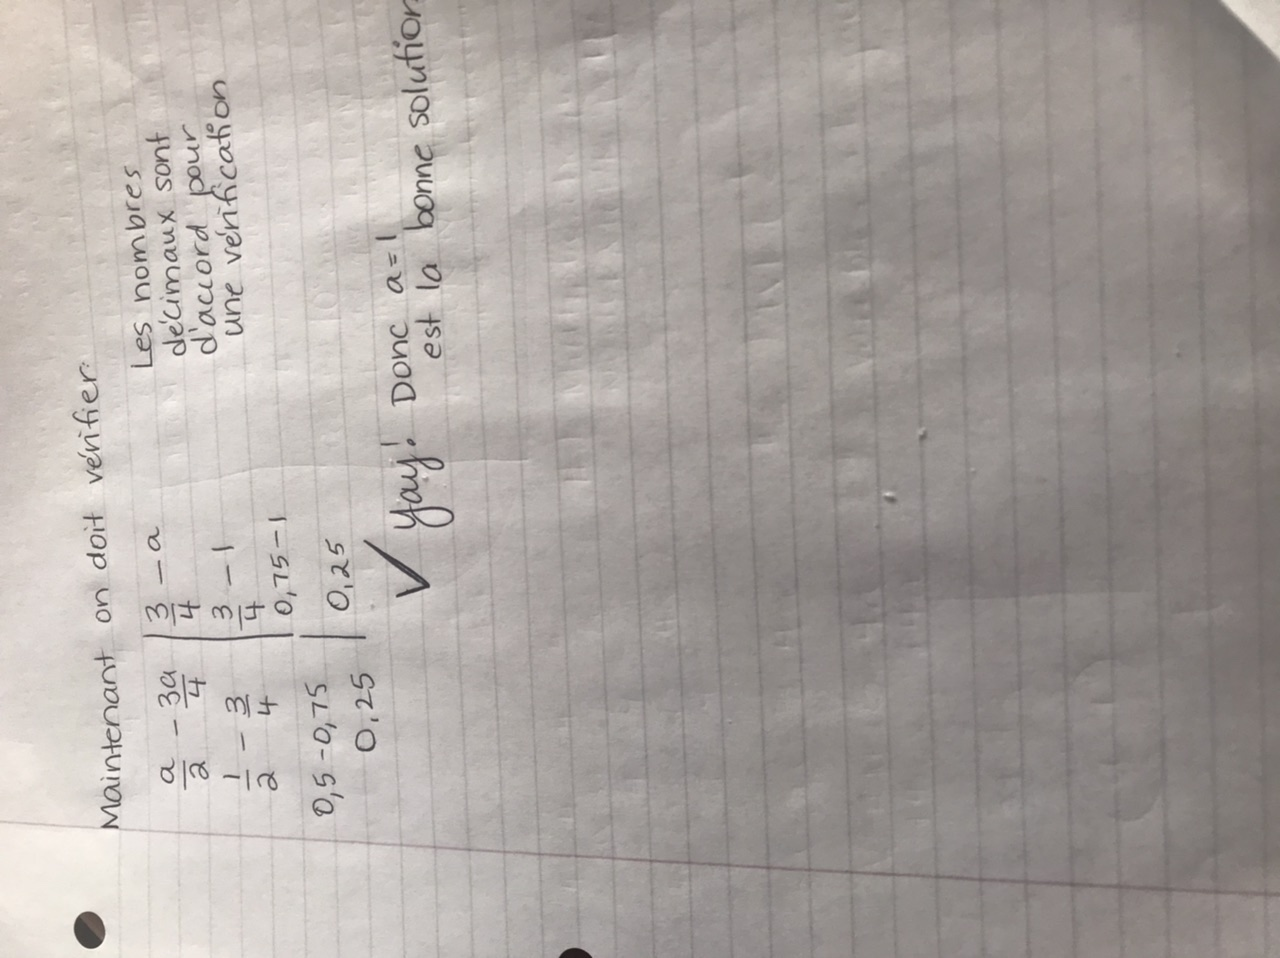 Maintenant on doit vérifier.
a/2 - 3a/4 | 3/4 - a
1/2 - 3/4 | 3/4 - 1
0,75 - 1
0,5 - 0,75
0,25 | 0,25
Les nombres
décimaux sont
d'accord pour
une vérification
✓ Yay! Donc a = 1
est la bonne solution